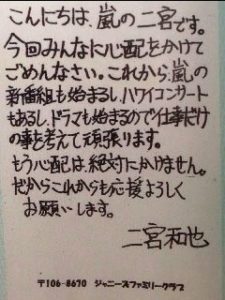 こんにちは、嵐の二宮です。
今回みんなに心配をかけて
ごめんなさい。これから、嵐の
新番組も始まるし、ハワイコンサート
もあるし、ドラマも始まるので仕事だけ
の事を考えて頑張ります。
もう心配は、絶対にかけません。
だからこれからも応援よろしく
お願いします。
二宮和也
〒106-8670 ジャニーズファミリークラブ